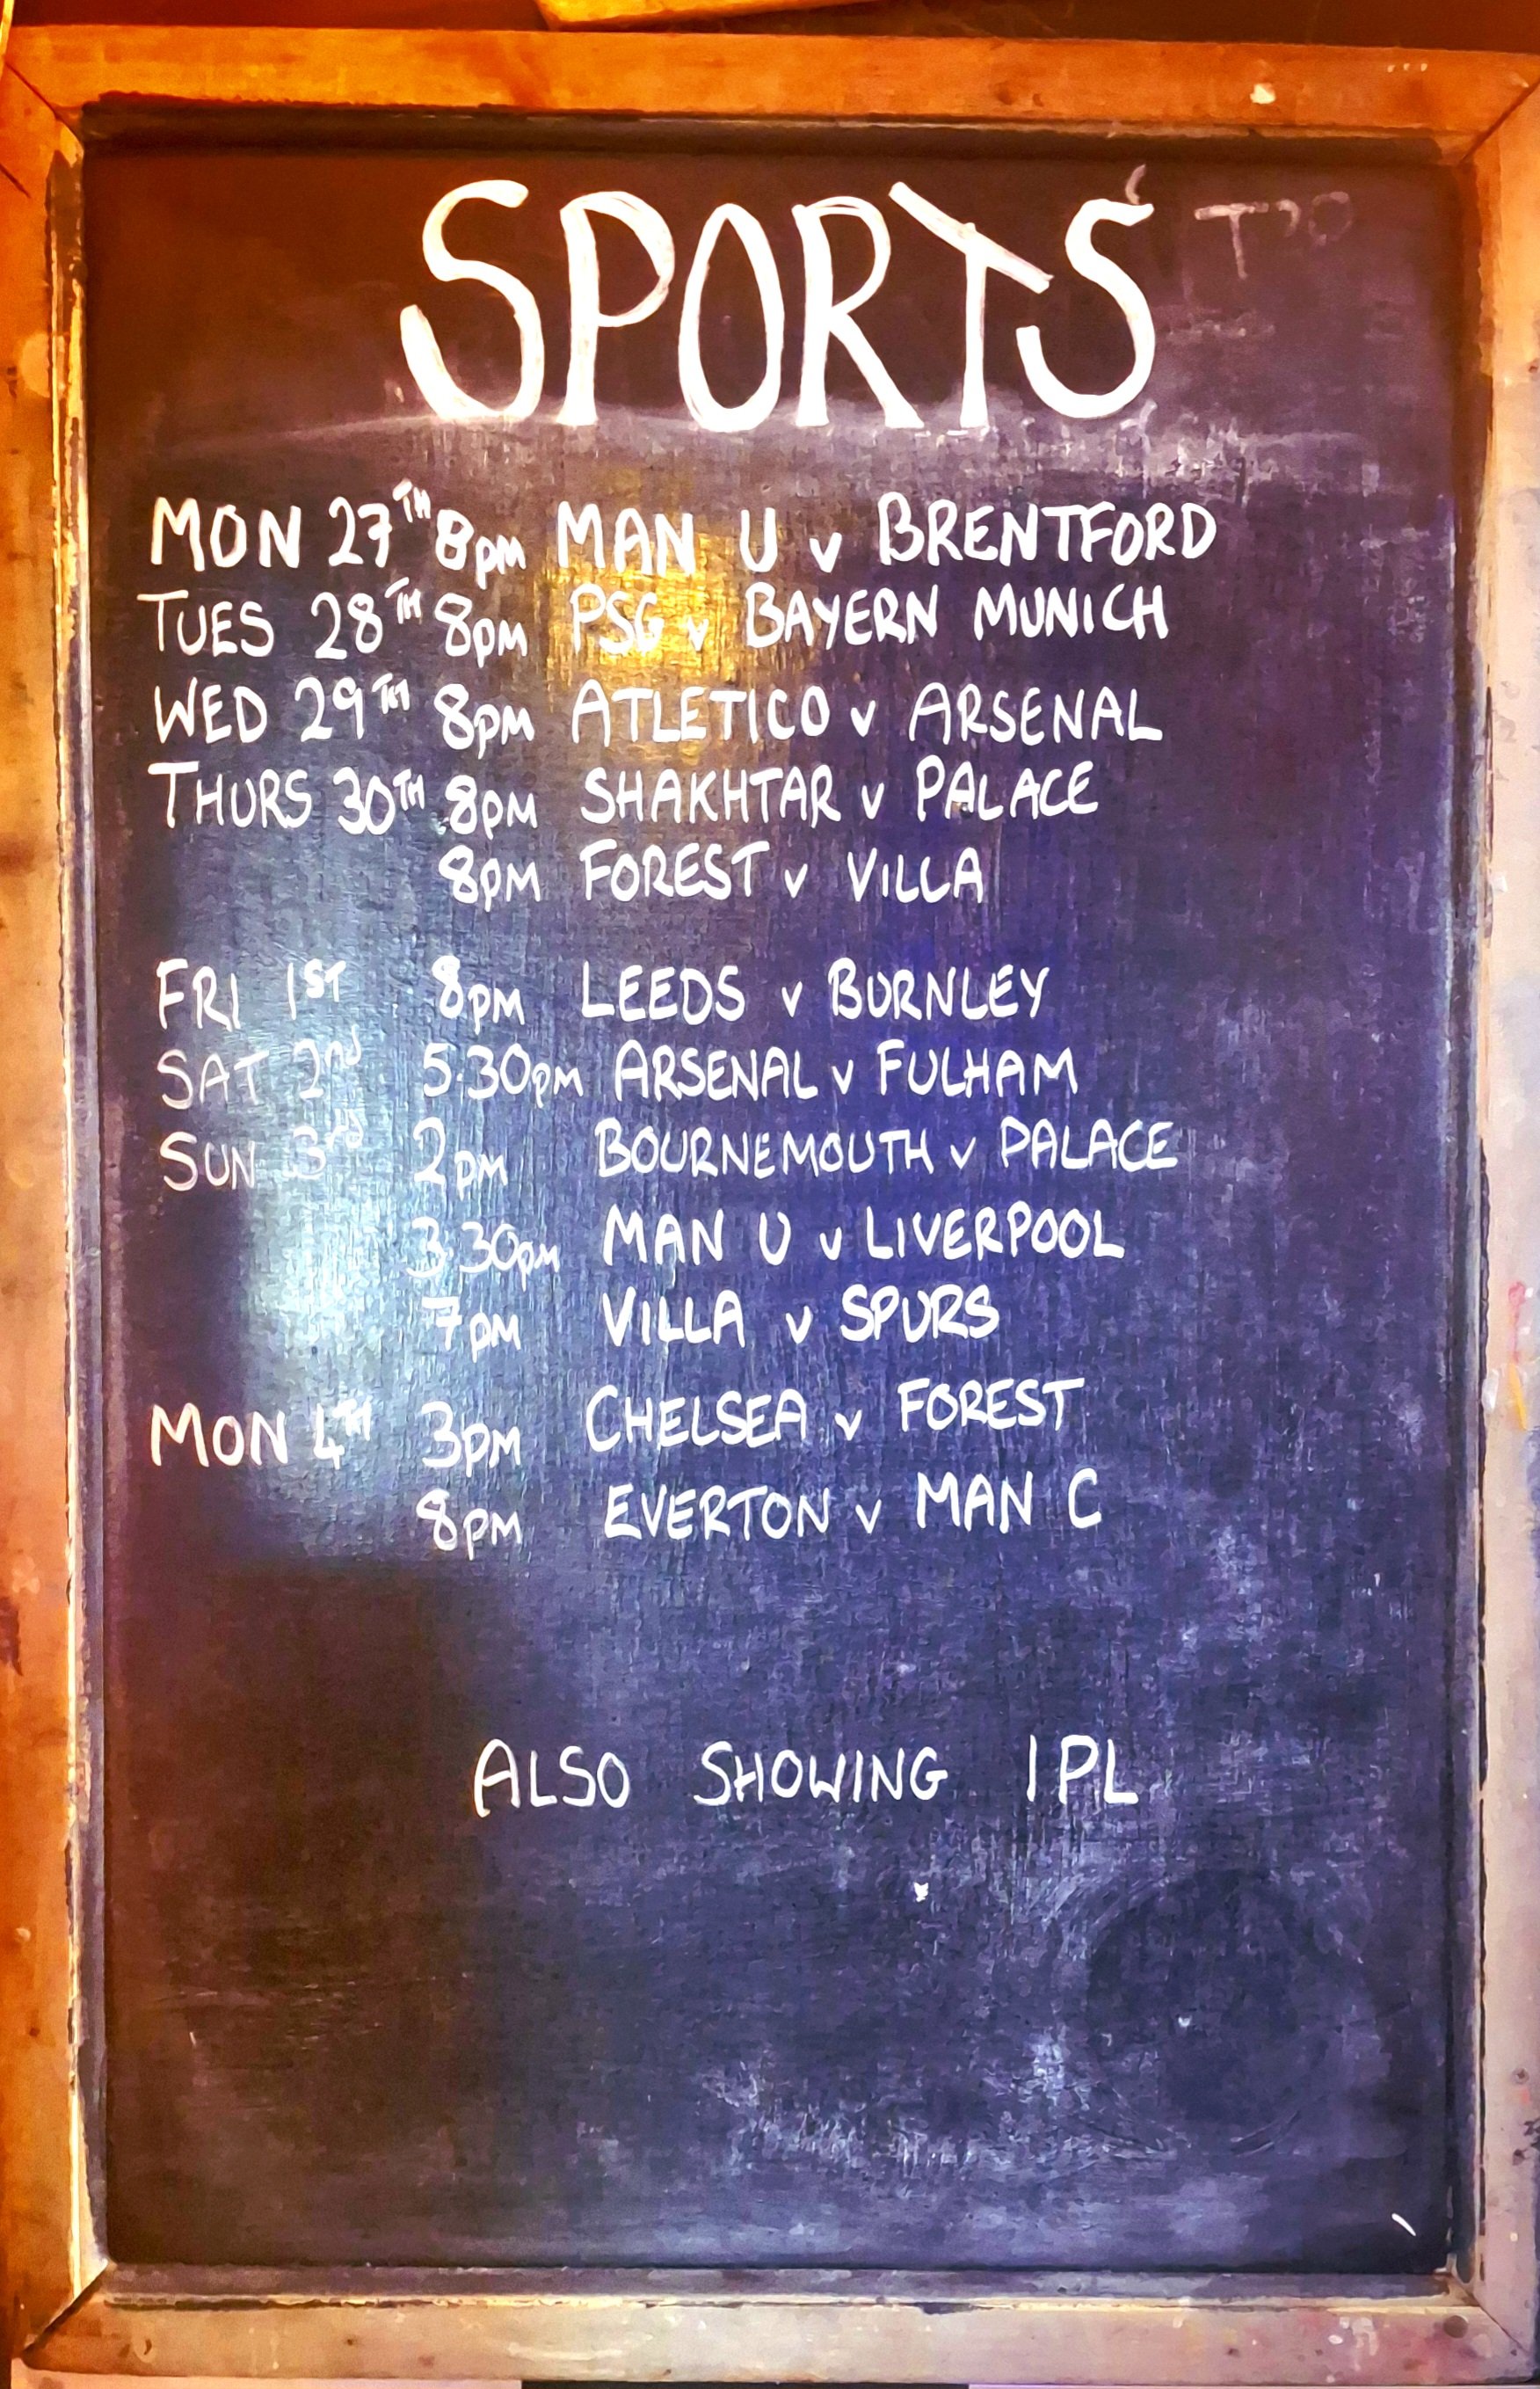 SPORTS
MON 27TH 8PM MAN U v BRENTFORD
TUES 28TH 8PM PSG v BAYERN MUNICH
WED 29TH 8PM ATLETICO v ARSENAL
THURS 30TH 8PM SHAKHTAR v PALACE
8PM FOREST v VILLA
FRI 1ST 8PM LEEDS v BURNLEY
SAT 2nd 5.30PM ARSENAL v FULHAM
SUN 3rd 2PM BOURNEMOUTH v PALACE
3.30PM MAN U v LIVERPOOL
7PM VILLA v SPURS
MON 4TH 3PM CHELSEA v FOREST
8PM EVERTON v MAN C
ALSO SHOWING IPL